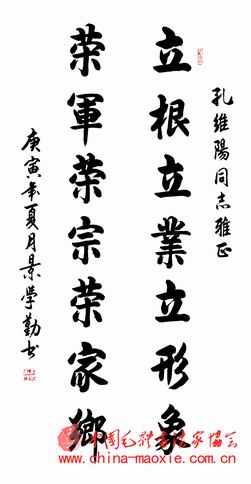 孔維陽同志雅正
立根立業立形象
榮軍榮宗榮家鄉
庚寅年夏月景學勤书
中国毛体书法家协会
www.china-maoxie.com.cn